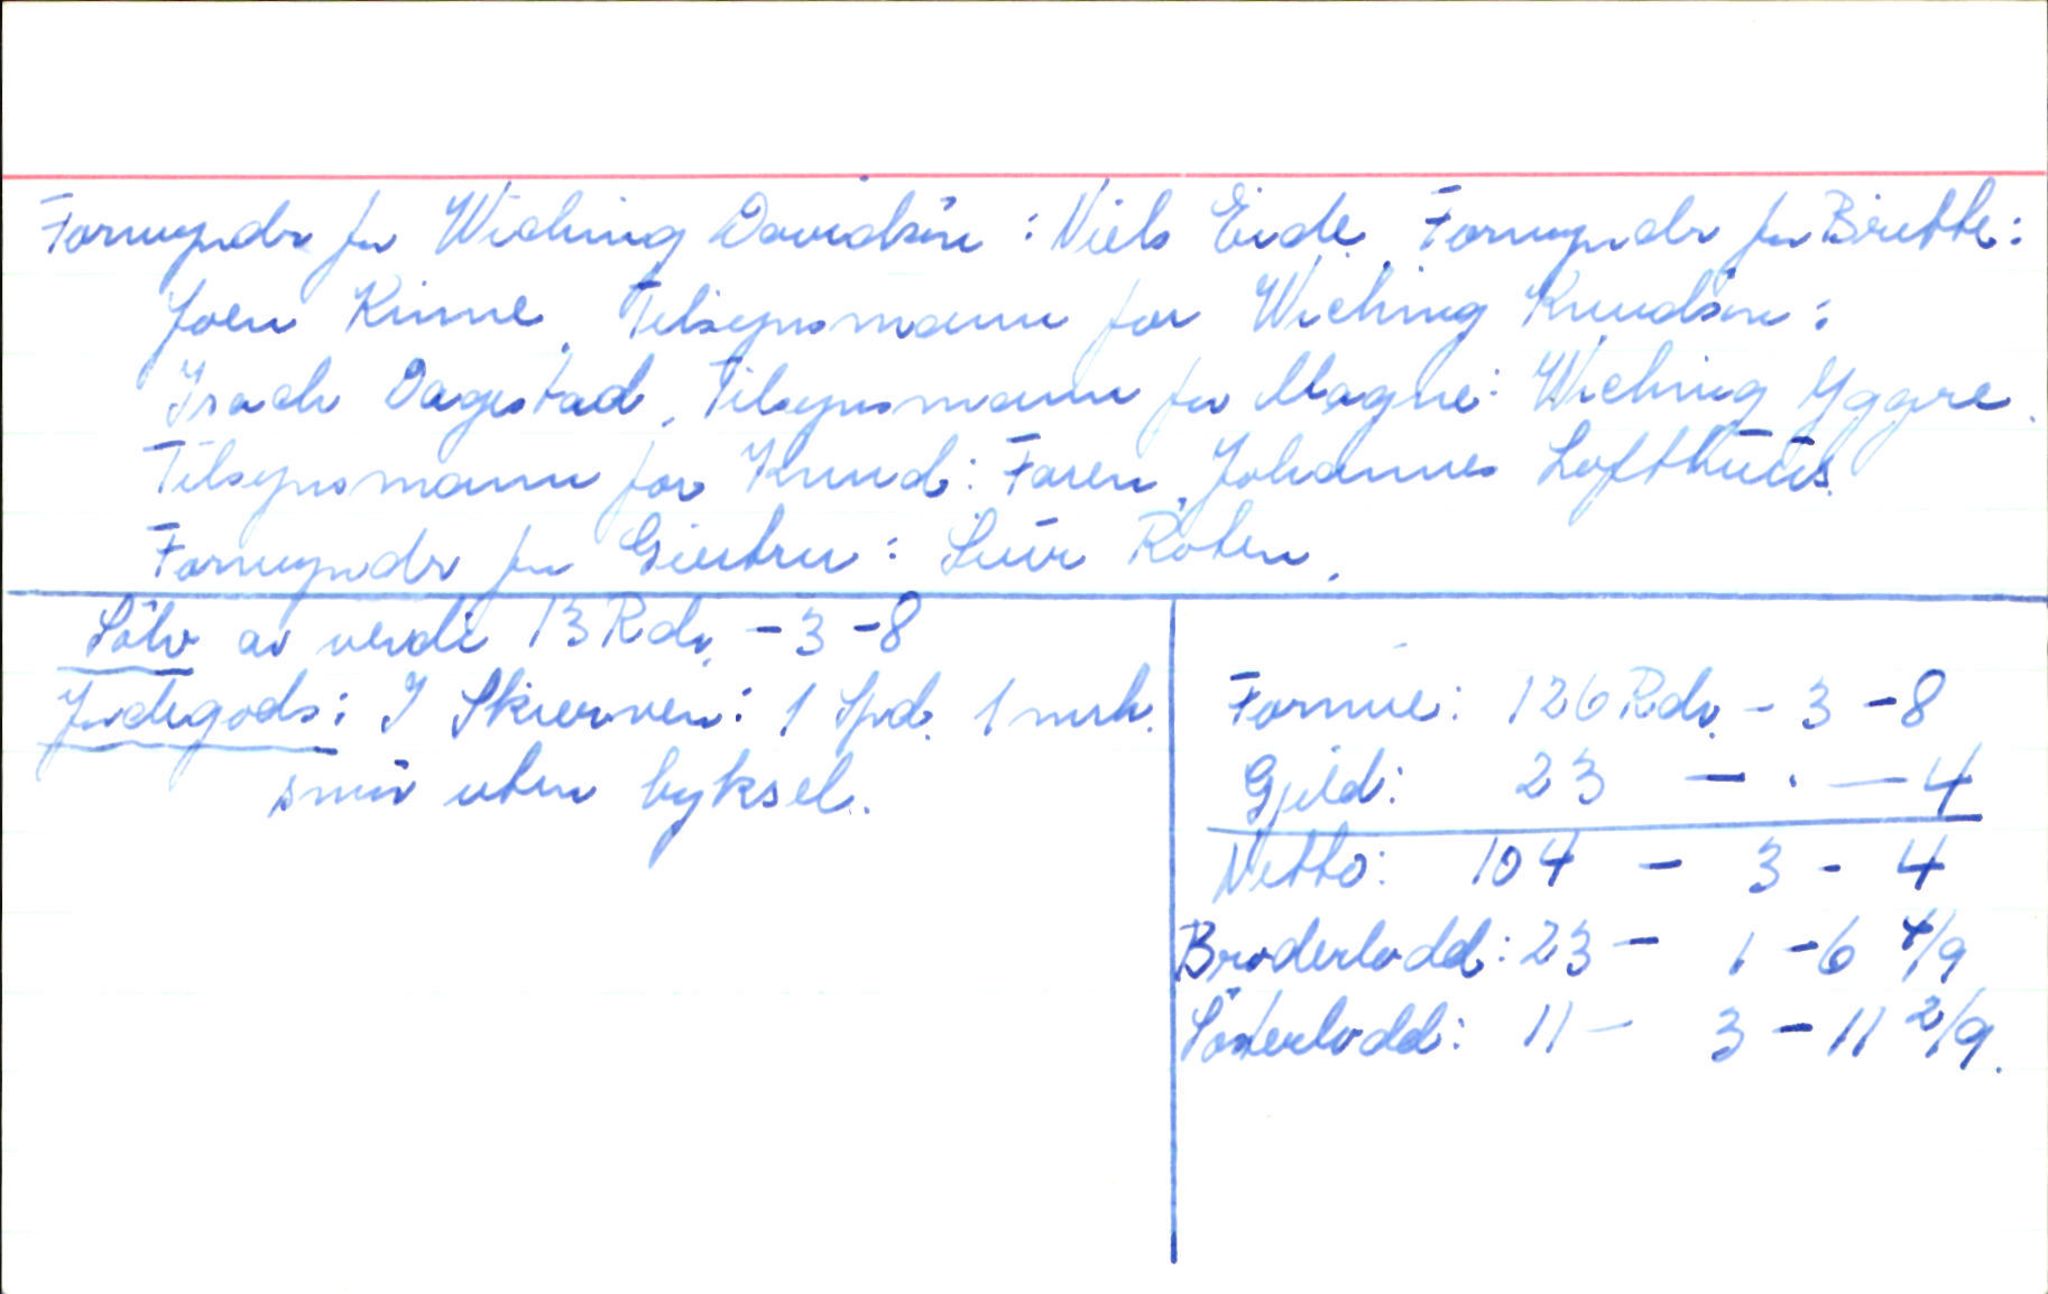 Formyndr for Wiching Davidsön: Niels Eide. Formyndr for Britthe:
Joen Kinne. Tilsynsmann for Wiching Knudsön:
Isach Dagestad. Tilsynsmann for Magne: Wiching Yggre.
Tilsynsmann for Knud: Faren, Johannes Lofthuus.
Formyndr for Giertru: Siur Röten.
Sölv av verdi 13 Rdr. - 3 - 8
Jordegods: I Skierven: 1 Spd. 1 mrk.
smör uten byksel.
Formue: 126 Rdr. - 3 - 8
Gjeld: 23 — · — 4
Netto: 104 - 3 - 4
Broderlodd: 23 - 1 - 6 4/9
Sösterlodd: 11 - 3 - 11 2/9.